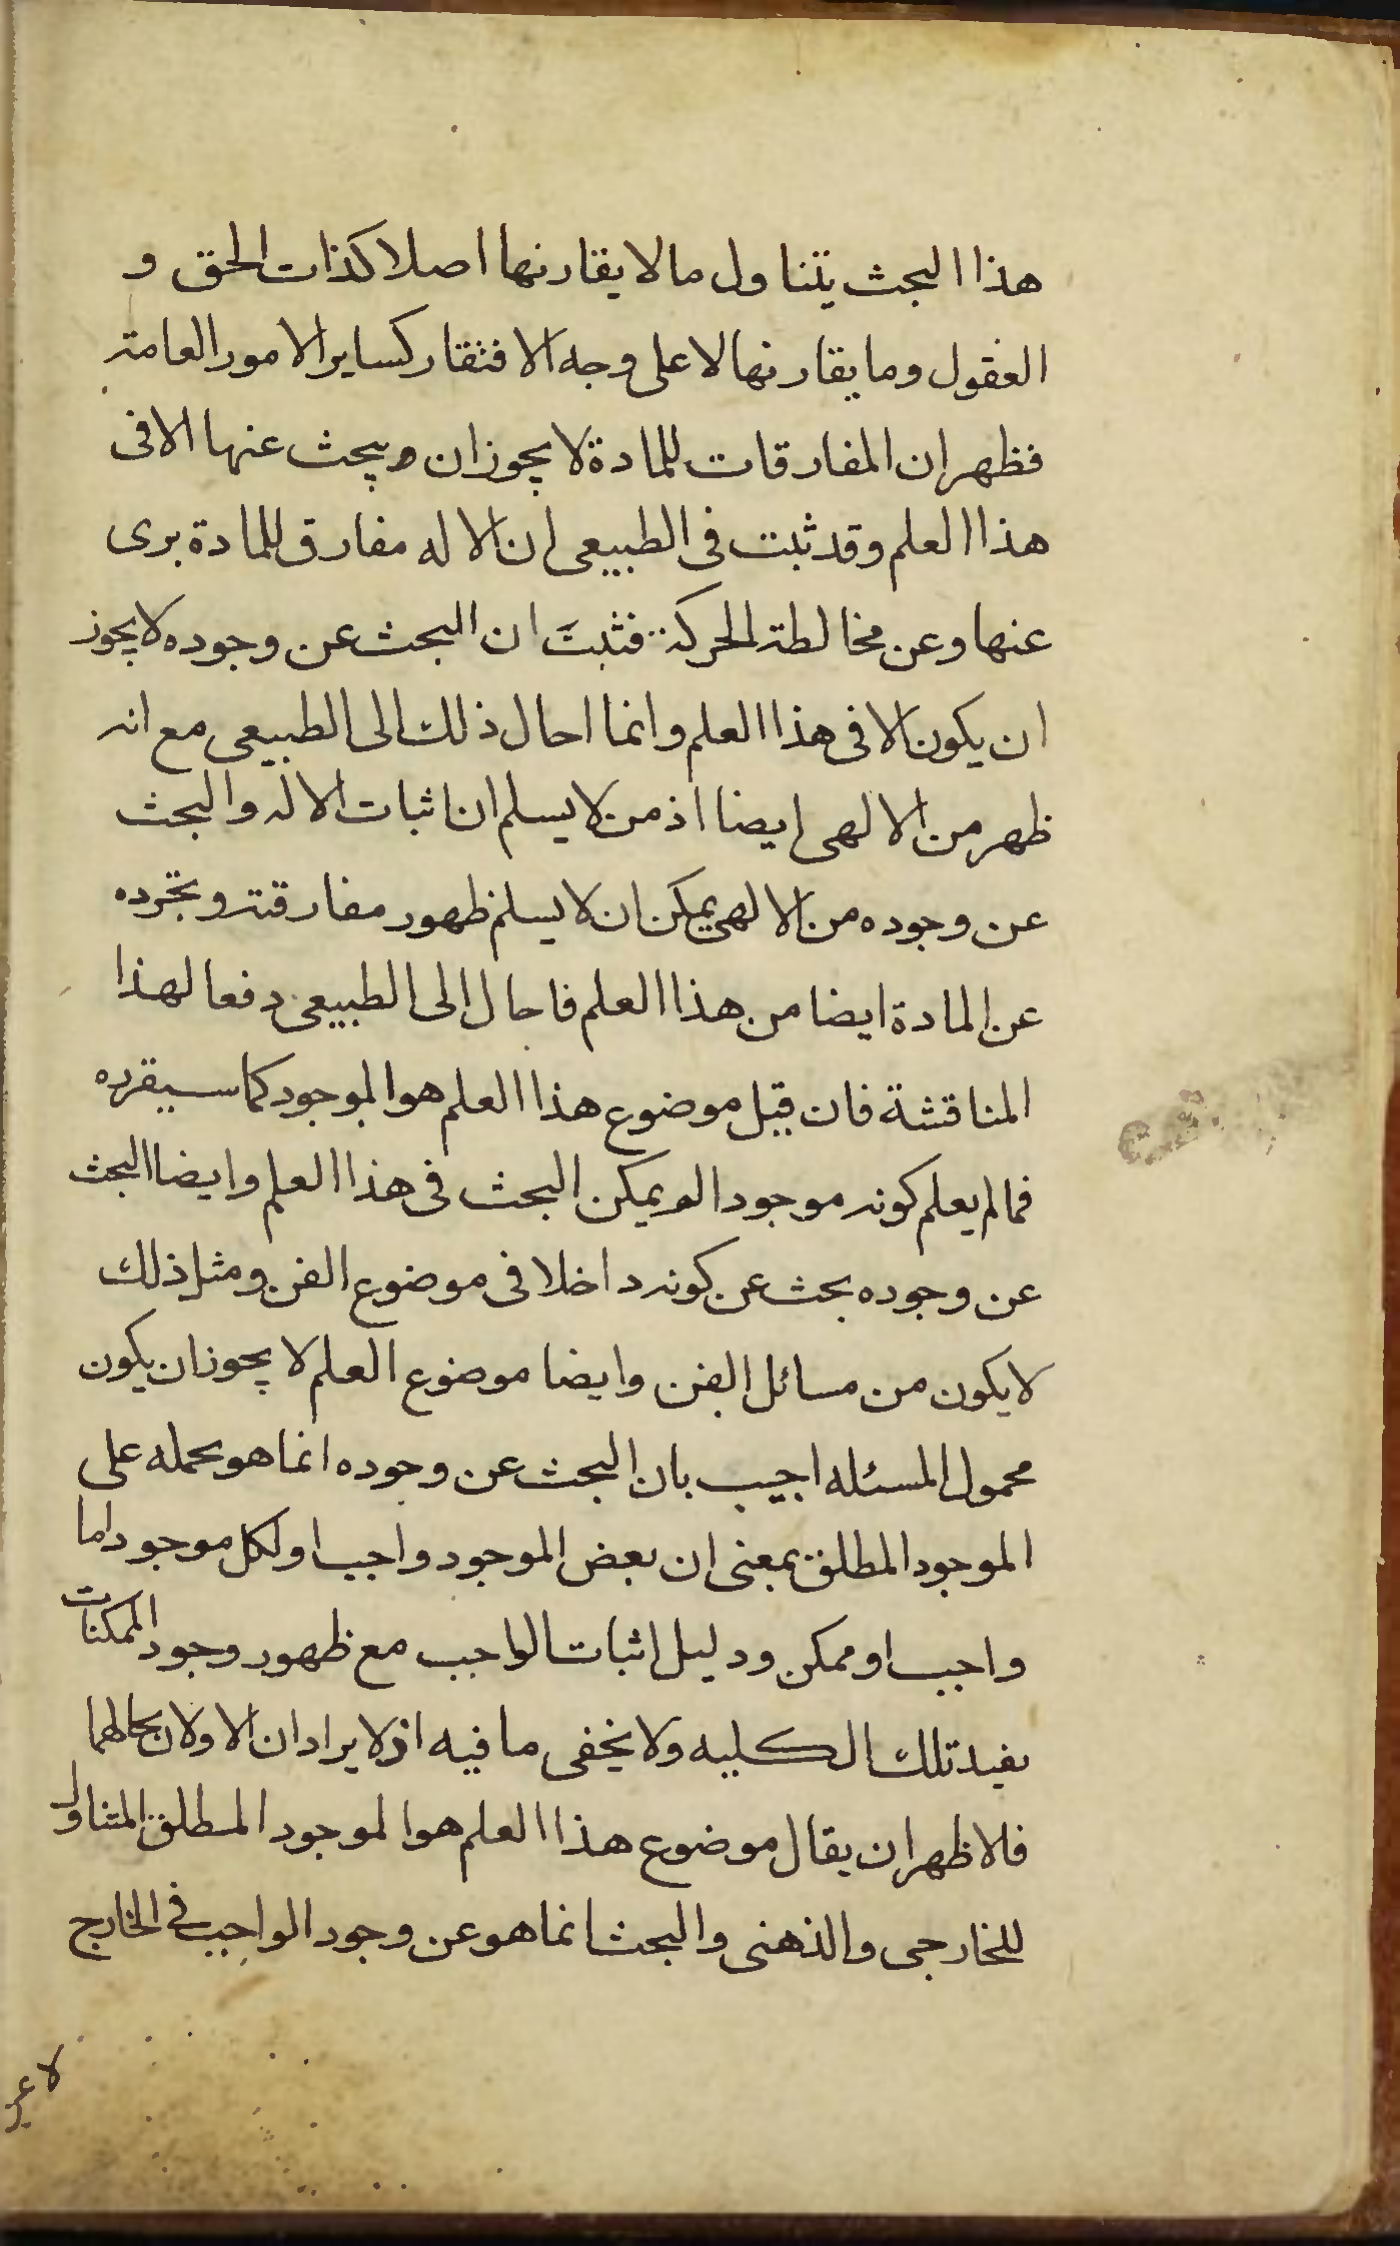 هذا البحث يتناول ما لا يقارنها اصلا كذات الحق و
العقول وما يقارنها لا على وجه الافتقار كساير الامور العامة
فظهر ان المفارقات للمادة لا يجوز ان يبحث عنها الا فى
هذا العلم وقد ثبت فى الطبيعى ان الاله مفارق للمادة برى
عنها وعن مخالطة الحركة فثبتَ ان البحث عن وجوده لا يجوز
ان يكون الا فى هذا العلم وانما احال ذلك الى الطبيعى مع انه
ظهر من الالهى ايضا اذ من لا يسلم ان اثبات الاله والبحث
عن وجوده من الالهى يمكن ان لا يسلم ظهور مفارقته وتجرده
عن المادة ايضا من هذا العلم فاحال الى الطبيعى دفعا لهذا
المناقشة فان قيل موضوع هذا العلم هو الموجود كما سيقرده
فما لم يعلم كونه موجودا لم يمكن البحث فى هذا العلم وايضا البحث
عن وجوده بحث عن كونه داخلا فى موضوع الفن ومثل ذلك
لا يكون من مسائل الفن وايضا موضوع العلم لا يجوز ان يكون
محمول المسئله اجيب بان البحث عن وجوده انما هو بحمله على
الموجود المطلق بمعنى ان بعض الموجود واجب او لكل موجود اما
واجب او ممكن ودليل اثبات الواجب مع ظهور وجود الممكنات
يفيد تلك الكليه ولا يخفى ما فيه اذ الايرادان الاولان بحالهما
فلاظهر ان يقال موضوع هذا العلم هو الموجود المطلق المتناول
للخارجى والذهنى والبحث انما هو عن وجود الواجب فى الخارج